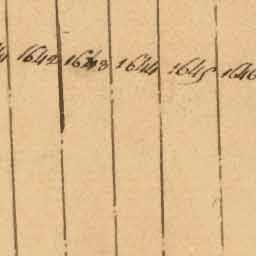 1642 1643 1644 1645 1646